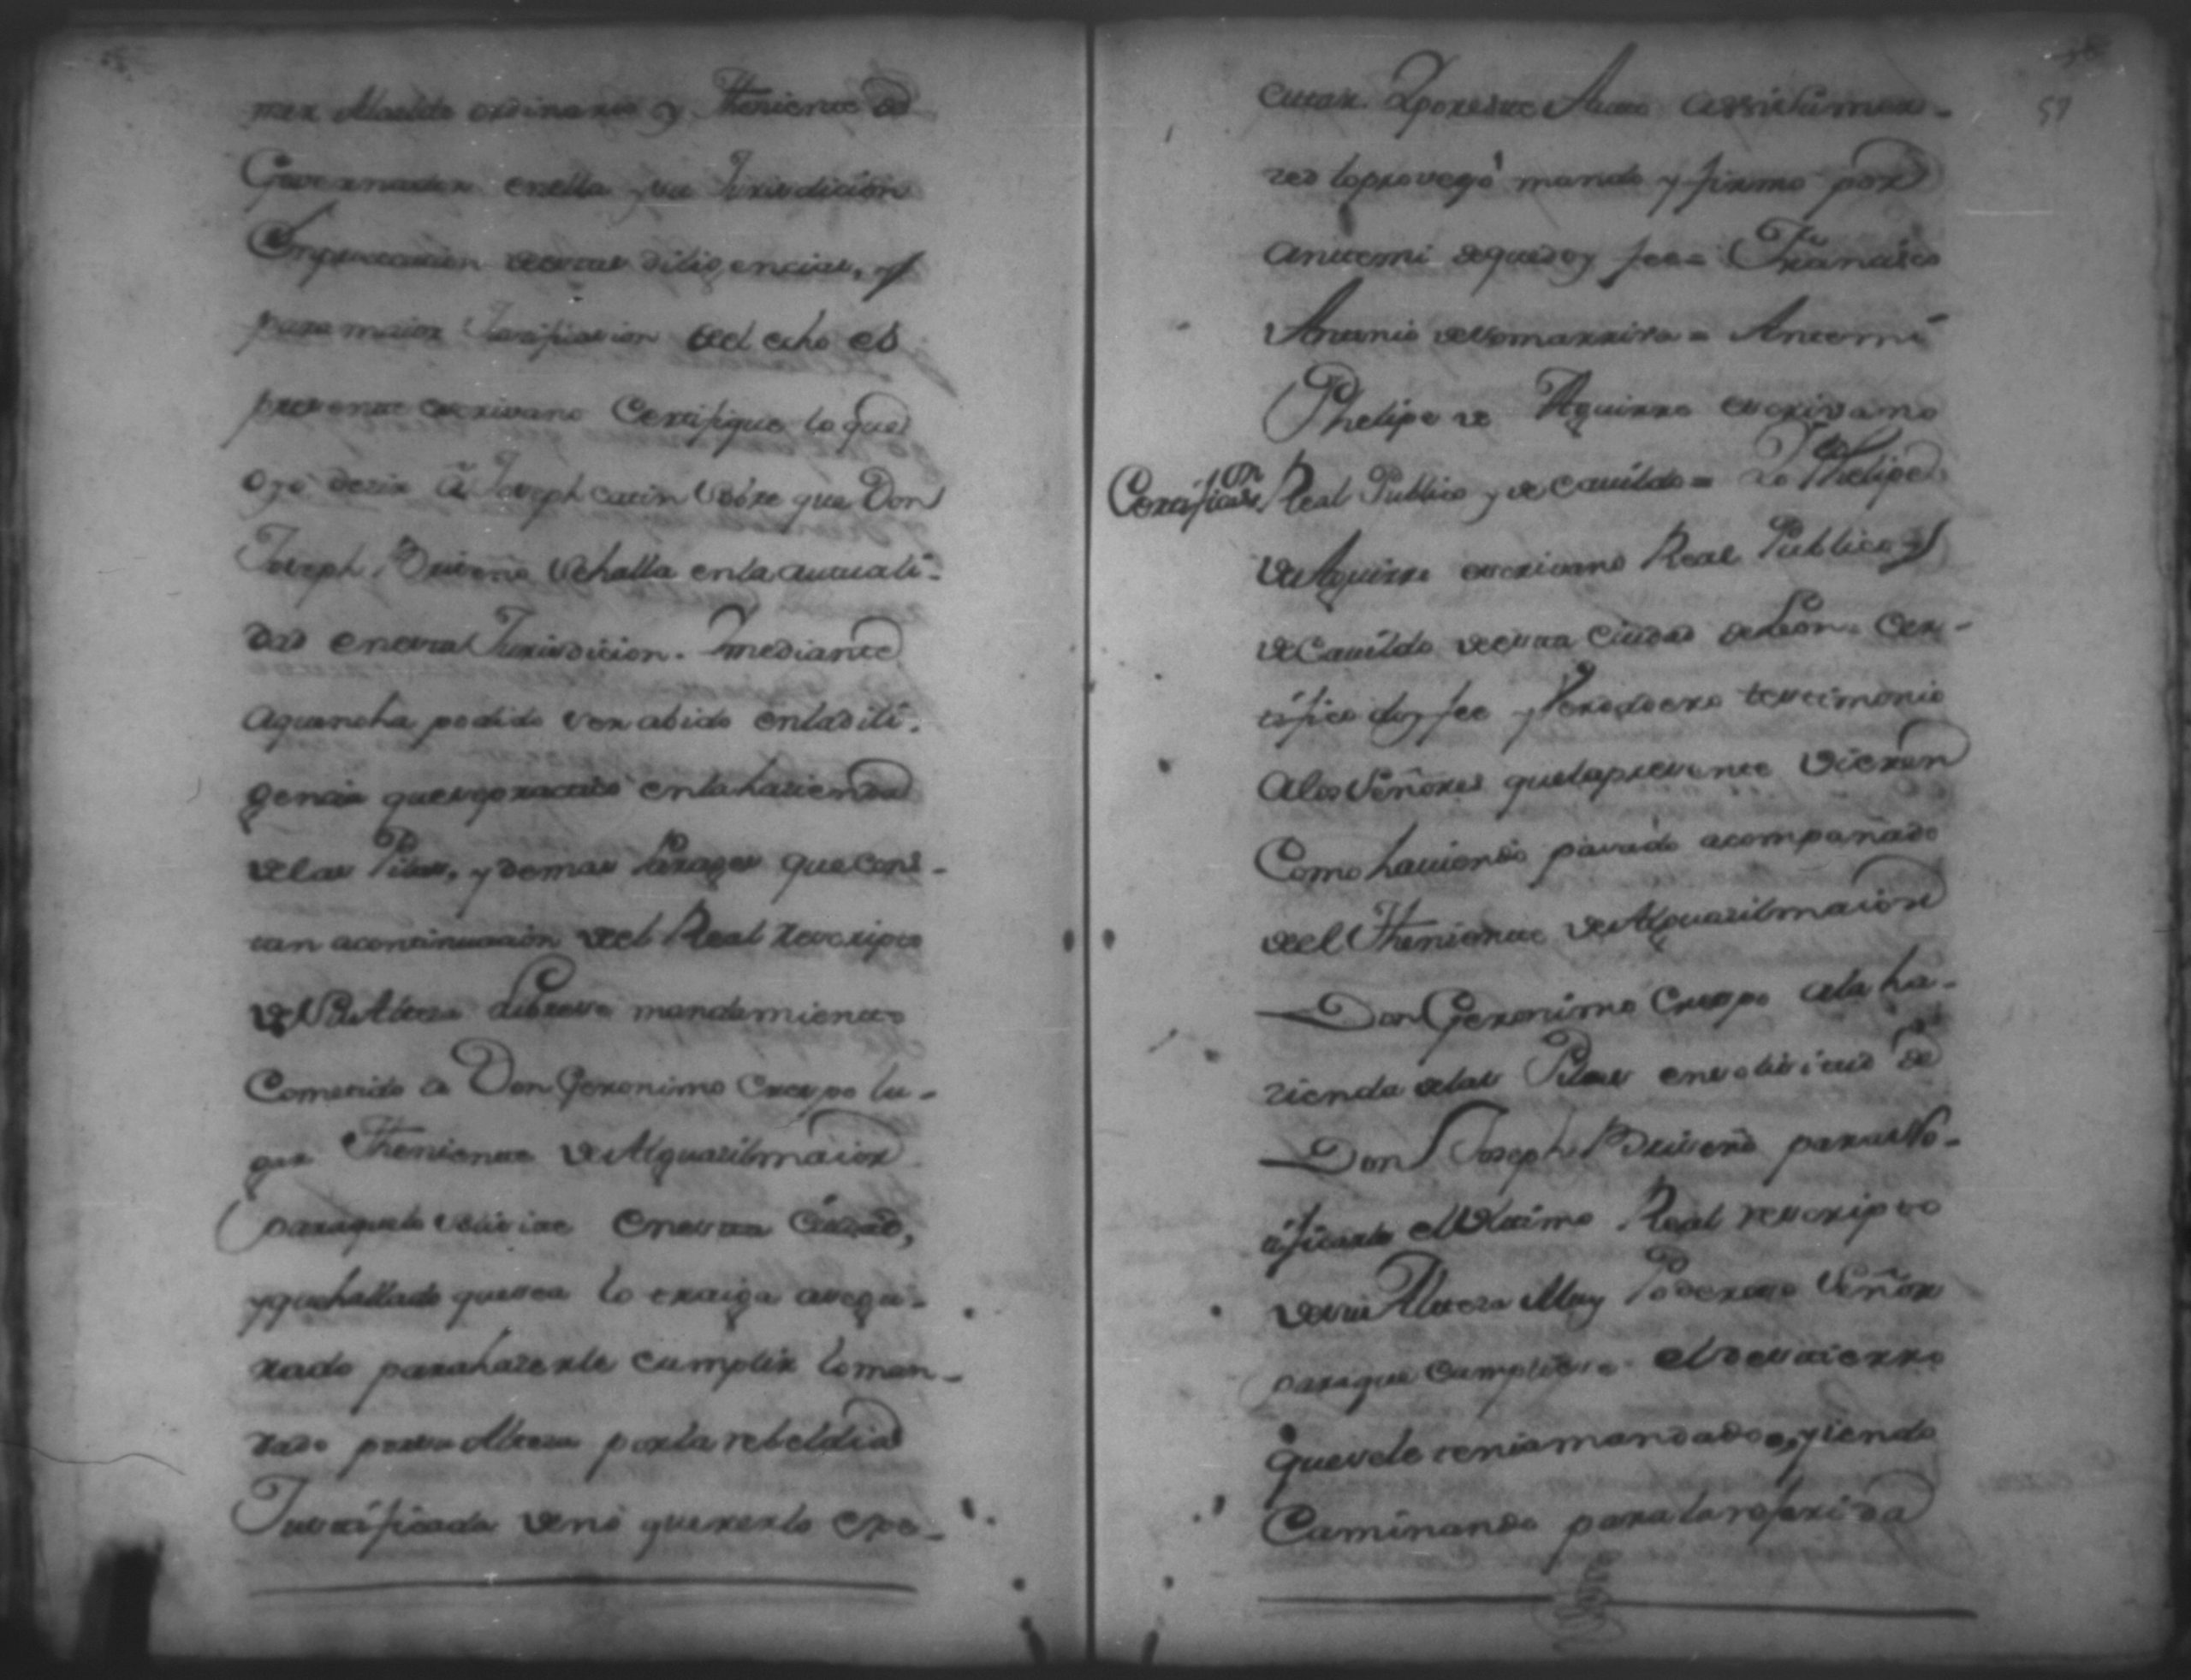 mer Alcalde ordinario y Theniente de
Governador enella y su Jurisdicion
En prosecucion destas diligencias, y
para maior Justificacion del echo el
presente escrivano Certifique lo que
oyo dezir â Joseph catin sobre que Don
Joseph Briseño se halla enla actuali-
dad enesta Jurisdicion. Y mediante
aquenoha podido ser abido enla dili-
gencia quesepractico enlahacienda
delas Pilas, y demas Parages que cons-
tan acontinuacion del Real rescripto
de Su Alteza Librese mandamiento
Cometido a Don Geronimo Crespo lu-
gar Theniente de Alguacilmaior
paraquelo solicite enesta Ciudad,
y que hallado quesea lo traiga asegu-
rado parahazerle cumplir loman-
dado porsu Alteza porla rebeldia
Justificada deno quererlo exe-
57
cutar. Y poreste Auto assi lo mando
lo proveyó mando y firmo por
antemi dequedoy fee = Francisco
Antonio de Somarriva = Antemi
Phelipe de Aguirre escrivano
Real Publico y de Cavildo = Yo Phelipe
Certificaon.
de Aguirre escrivano Real Publico y
de Cavildo de esta Ciudad de Leon = Cer-
tifico doy fee y Verdadero testimonio
alos Señores quelapresente vieren
Como haviendo pasado acompañado
del Theniente de Alguacilmaior
Don Geronimo Crespo ala ha-
zienda delas Pilas ensolicitud de
Don Joseph Briseño para No-
tificarle el Ultimo Real rescripto
devuestra Alteza Muy Poderoso Señor
paraque Cumpliese el destierro
quesele teniamandado, y iendo
Caminando para la referida